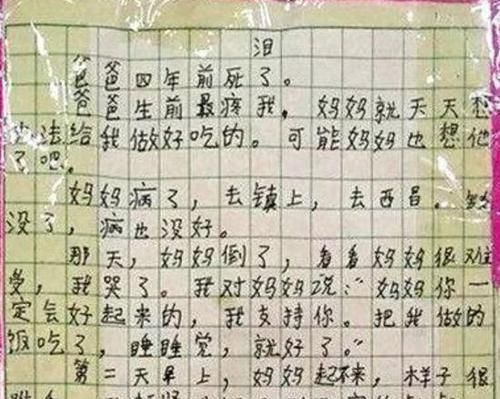 泪
爸爸四年前死了。
爸爸生前最疼我。妈妈就天天想
办法给我做好吃的。可能妈妈也想他
了吧。
妈妈病了，去镇上，去西昌。钱
没了，病也没好。
那天，妈妈倒了，看看妈妈很难
受，我哭了。我对妈妈说：“妈妈你一
定会好起来的，我支持你。把我做的
饭吃了，睡睡觉，就好了。”
第二天早上，妈妈起不来，样子很